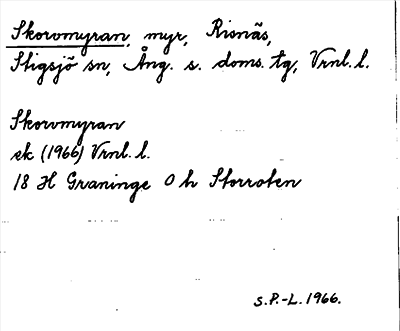 Skorvmyran, myr, Risnäs,
Stigsjö sn, Ång. s. doms. tg, Vrnl. l.
Skorvmyran
ek (1966) Vrnl. l.
18 H Graninge 0 h Storroten
S.P.-L. 1966.